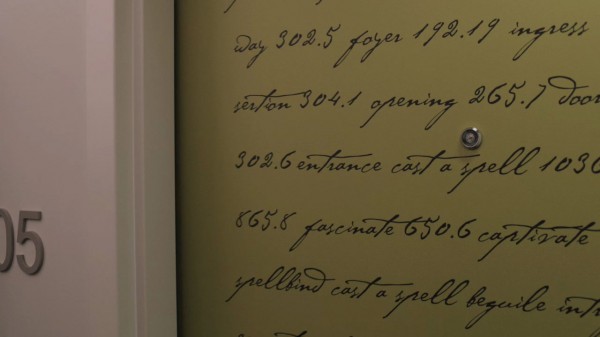 way 302.5 foyer 192.19 ingress
insertion 304.1 opening 265.7 door
302.6 entrance cast a spell 1036
865.8 fascinate 650.6 captivate
spellbind cast a spell beguile
05